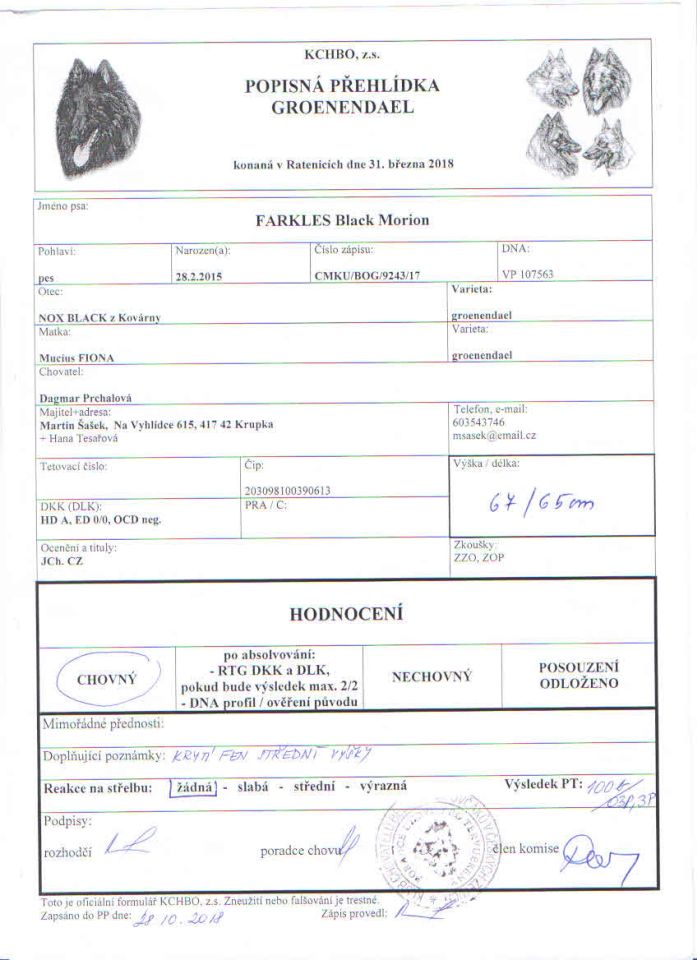 KCHBO, z.s.
POPISNÁ PŘEHLÍDKA
GROENENDAEL
konaná v Ratenicích dne 31. března 2018
Jméno psa:
FARKLES Black Morion
Pohlaví: Narozen(a): Číslo zápisu: DNA:
pes 28.2.2015 CMKU/BOG/9243/17 VP 107563
Otec: Varieta:
NOX BLACK z Kovárny groenendael
Matka: Varieta:
Mucius FIONA groenendael
Chovatel:
Dagmar Prchalová
Majitel+adresa: Telefon, e-mail:
Martin Šašek, Na Vyhlídce 615, 417 42 Krupka 603543746
+ Hana Tesařová msasek@email.cz
Tetovací číslo: Čip: Výška / délka:
203098100390613 67/65cm
DKK (DLK): PRA / C:
HD A, ED 0/0, OCD neg.
Ocenění a tituly: Zkoušky:
JCh. CZ ZZO, ZOP
HODNOCENÍ
CHOVNÝ
po absolvování:
- RTG DKK a DLK,
pokud bude výsledek max. 2/2
- DNA profil / ověření původu
NECHOVNÝ
POSOUZENÍ
ODLOŽENO
Mimořádné přednosti:
Doplňující poznámky: KRYTÍ FEN STŘEDNÍ VÝŠKY
Reakce na střelbu: žádná - slabá - střední - výrazná Výsledek PT: 100b/
O3P,3P
Podpisy:
rozhodčí poradce chovu člen komise
Toto je oficiální formulář KCHBO, z.s. Zneužití nebo falšování je trestné.
Zapsáno do PP dne: 28 10. 2018 Zápis provedl: